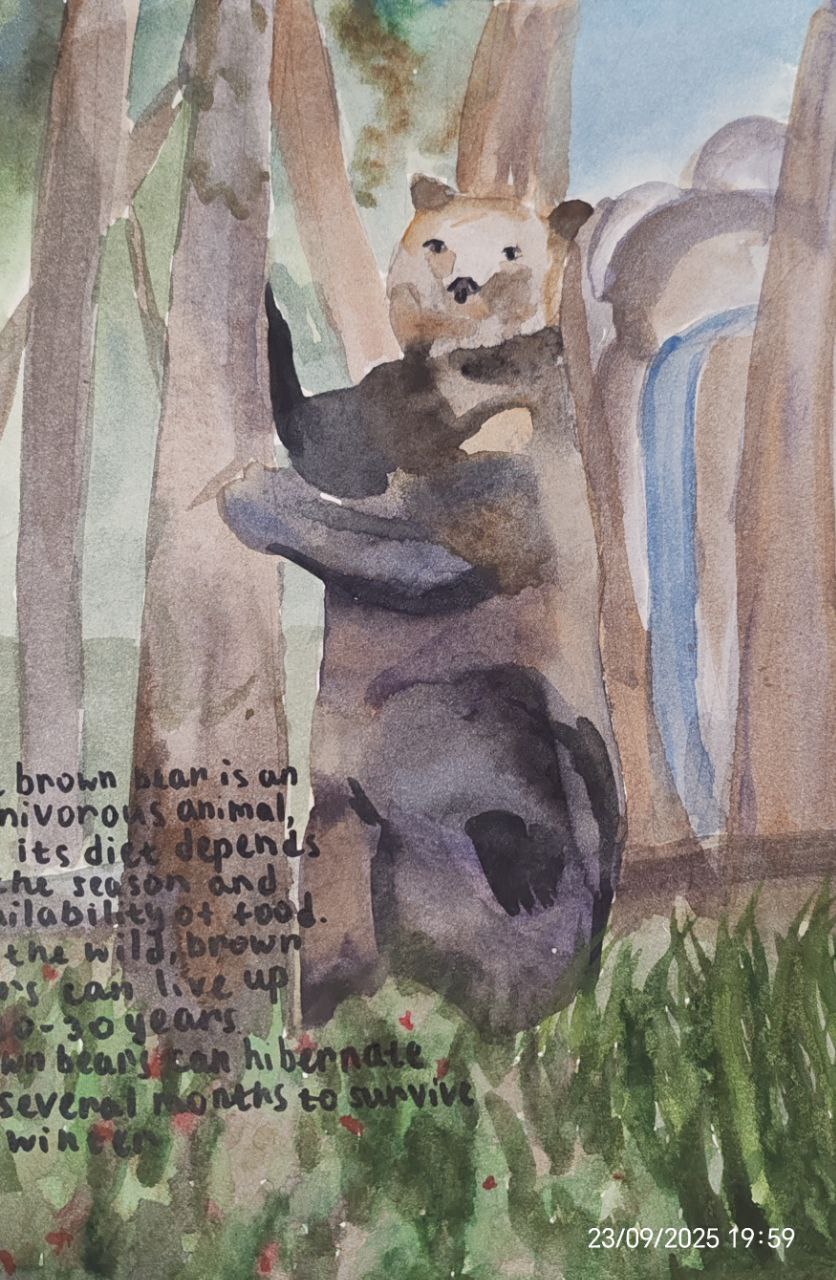 brown bear is an
nivorous animal,
its diet depends
the season and
ailability of food.
the wild, brown
rs can live up
0-30 years.
wn bears can hibernate
several months to survive
winter
23/09/2025 19:59